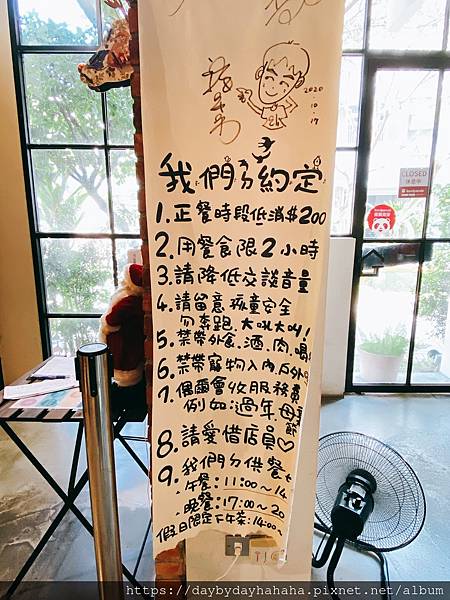 2020
10.17
我們ㄉ約定
1.正餐時段低消$200
2.用餐食限2小時
3.請降低交談音量
4.請留意孩童安全
勿奔跑.大吼大叫!
5.禁帶外食.酒.肉.
6.禁帶寵物入內戶外
7.偶爾會收服務費
例如:過年.母親節
8.請愛惜店員♡
9.我們ㄉ供餐
午餐:11:00~14
晚餐:17:00~20
假日限定下午茶:14:00~
CLOSED
休息中
https://daybydayhahaha.pixnet.net/album